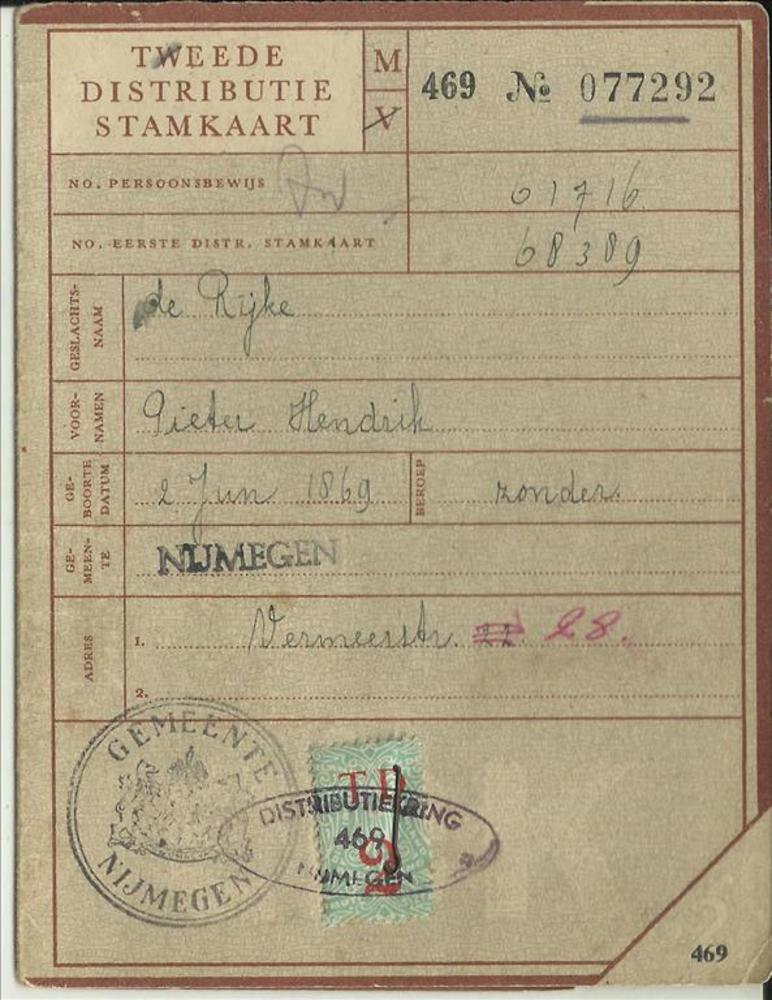 TWEEDE
DISTRIBUTIE
STAMKAART
M
V
469 № 077292
NO. PERSOONSBEWIJS
61716
NO. EERSTE DISTR. STAMKAART
68389
GESLACHTS-
NAAM
de Rijke
VOOR-
NAMEN
Pieter Hendrik
GE-
BOORTE
DATUM
2 Jun 1869
BEROEP
zonder
GE-
MEEN-
TE
NIJMEGEN
ADRES
1. Vermeerstr. 22. 28.
2.
GEMEENTE
NIJMEGEN
TD
2
DISTRIBUTIEKRING
469
NIJMEGEN
469